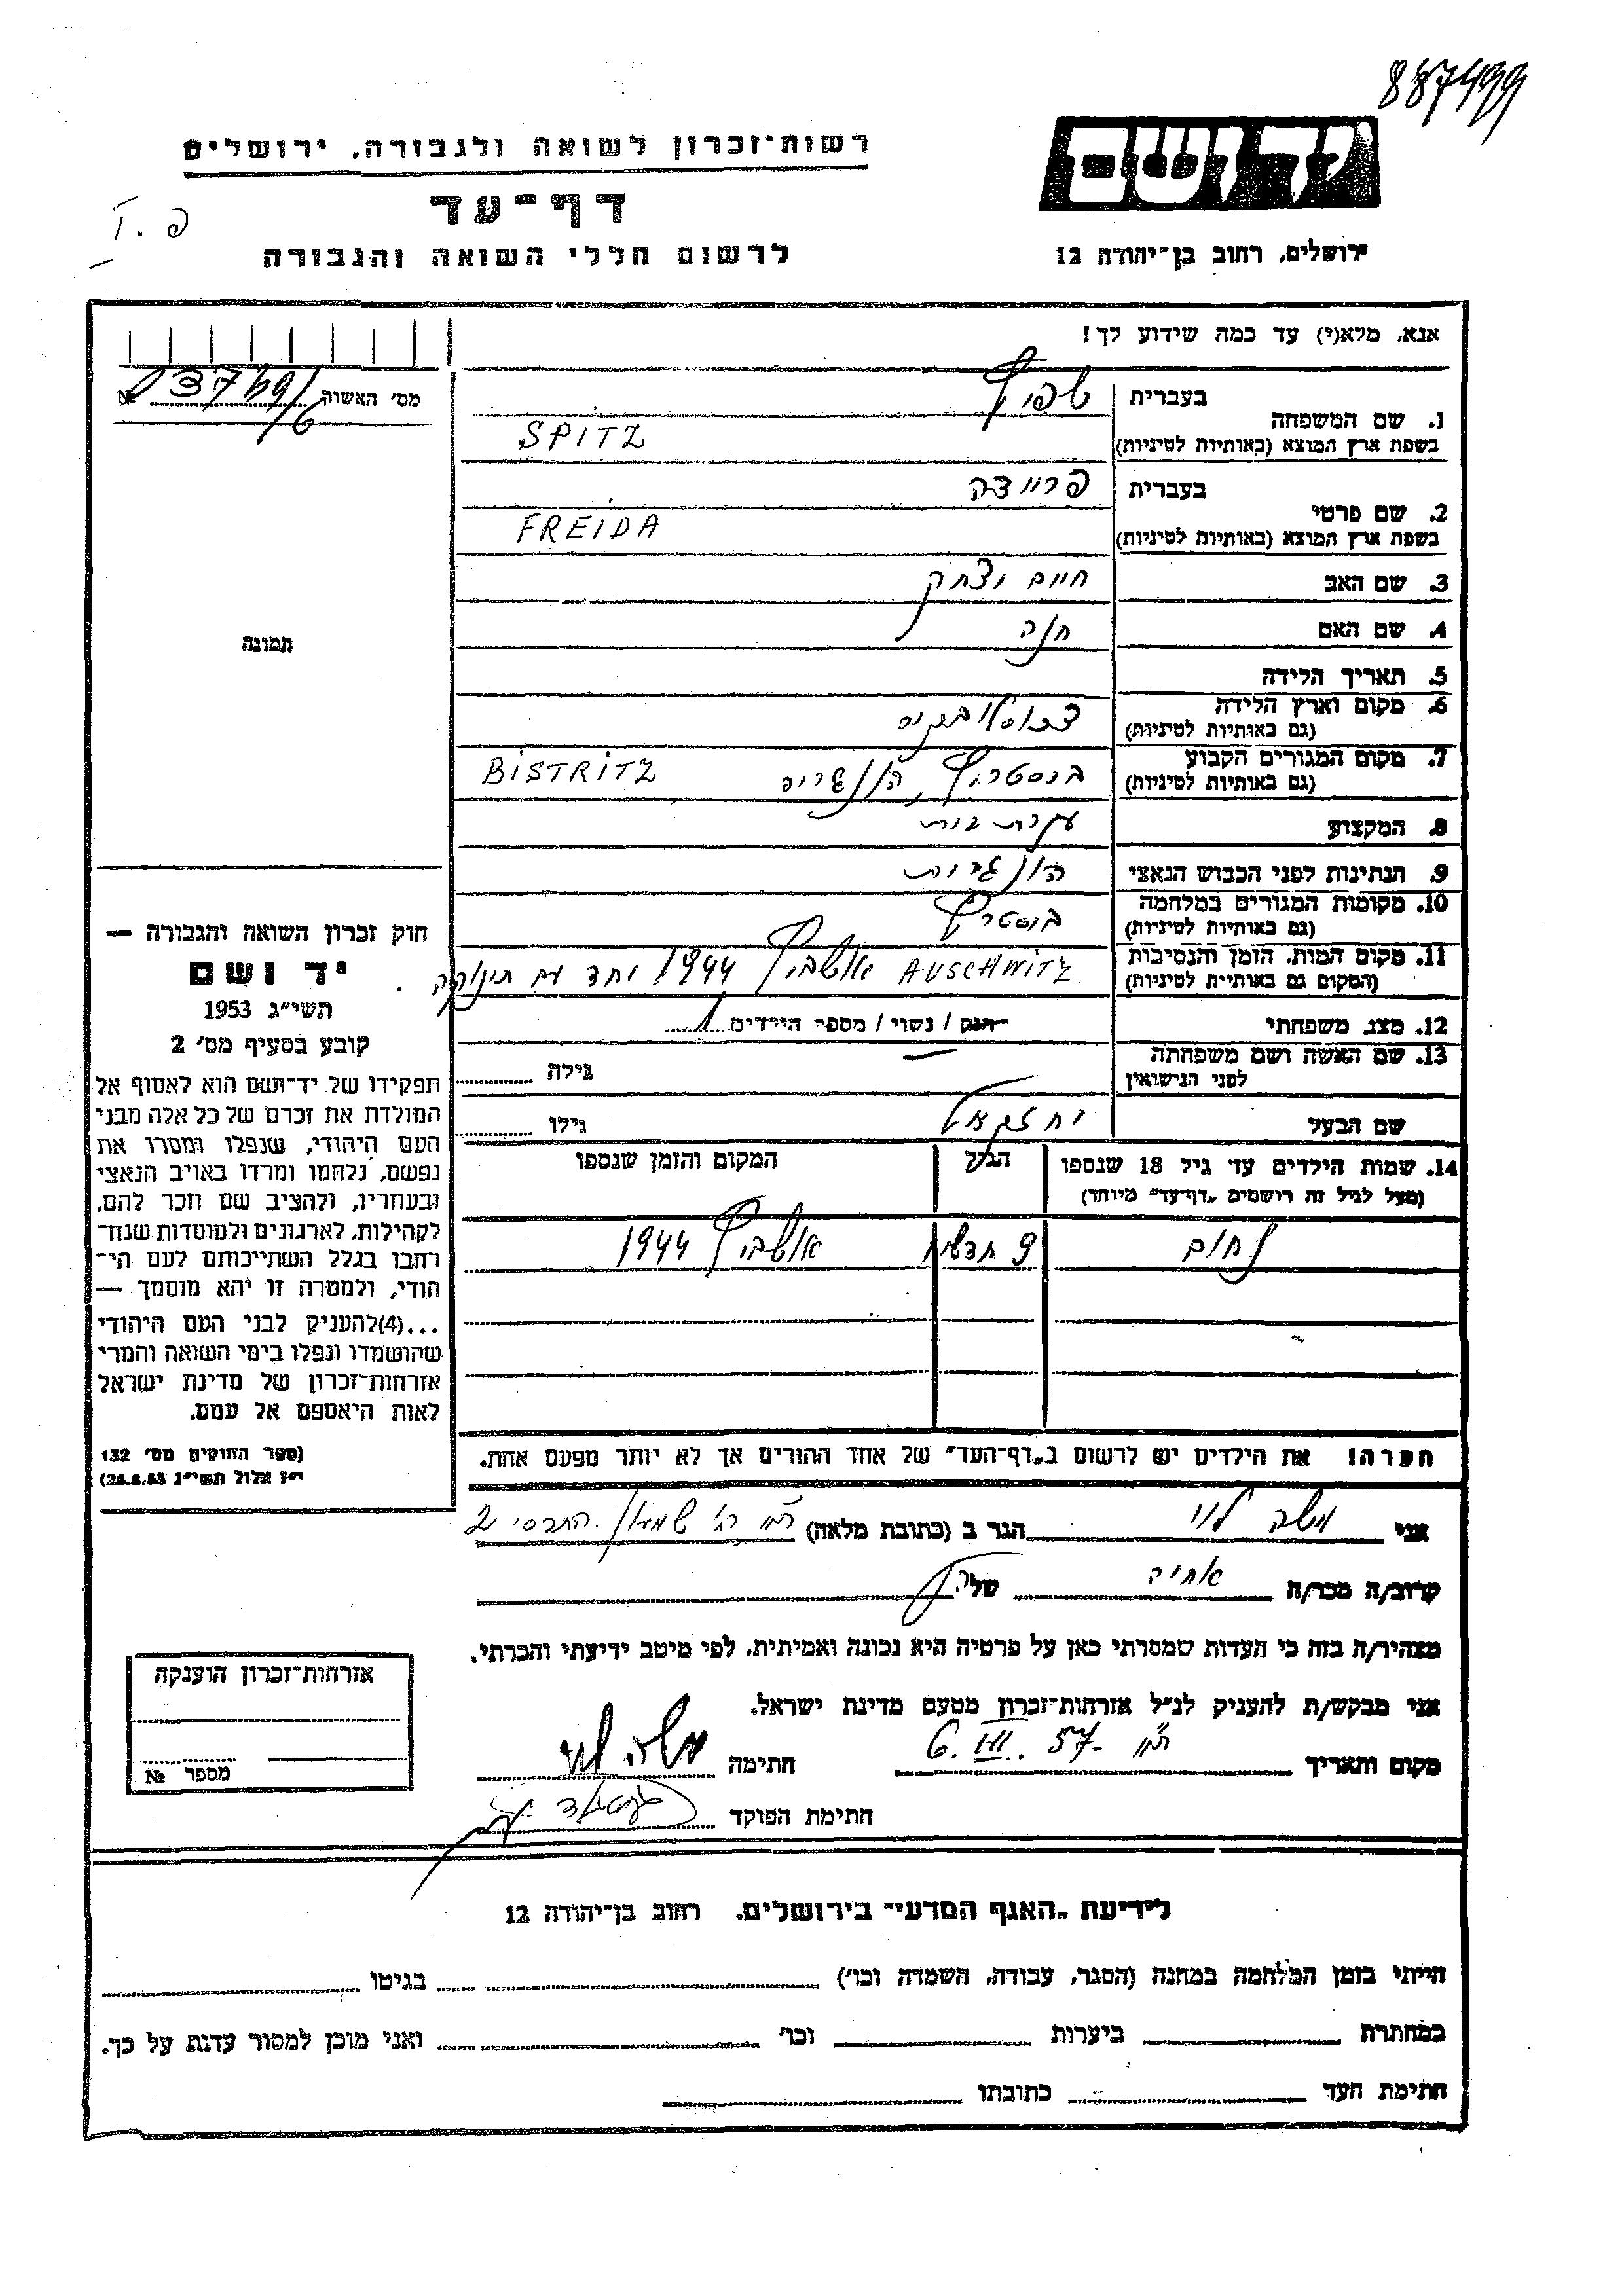 887499
יד ושם
רשות־זכרון לשואה ולגבורה, ירושלים
דף־עד
פ. T
לרשום חללי השואה והגבורה
ירושלים, רחוב בן־יהודה 12
אנא, מלא(י) עד כמה שידוע לך!
מס׳ האשוה № 13769/6
1. שם המשפחה בעברית שפיץ
בשפת ארץ המוצא (באותיות לטיניות) SPITZ
2. שם פרטי בעברית פריידה
בשפת ארץ המוצא (באותיות לטיניות) FREIDA
3. שם האב חיים יצחק
4. שם האם חנה
תמונה
5. תאריך הלידה
6. מקום וארץ הלידה צכוסלובקיה
(גם באותיות לטיניות)
7. מקום המגורים הקבוע ביסטריץ, BISTRITZ
(גם באותיות לטיניות)
8. המקצוע עקרת בית
9. הנתינות לפני הכבוש הנאצי הונגרית
10. מקומות המגורים במלחמה ביסטריץ
(גם באותיות לטיניות)
11. מקום המות, הזמן והנסיבות AUSCHWITZ אושביץ 1944 יחד עם תינוקה.
(המקום גם באותיית לטיניות)
12. מצב משפחתי רווק / נשוי / מספר הילדים 1
13. שם האשה ושם משפחתה — גילה
לפני הנישואין
שם הבעל יחזקאל גילו
14. שמות הילדים עד גיל 18 שנספו הגיל המקום והזמן שנספו
(מעל לגיל זה רושמים „דף־עד״ מיוחד)
נחום 9 חדשים אושביץ 1944
חוק זכרון השואה והגבורה —
יד ושם
תשי״ג 1953
קובע בסעיף מס׳ 2
תפקידו של יד־ושם הוא לאסוף אל
המולדת את זכרם של כל אלה מבני
העם היהודי, שנפלו ומסרו את
נפשם, נלחמו ומרדו באויב הנאצי
ובעוזריו, ולהציב שם וזכר להם,
לקהילות, לארגונים ולמוסדות שנח־
רבו בגלל השתייכותם לעם הי־
הודי, ולמטרה זו יהא מוסמך —
...(4)להעניק לבני העם היהודי
שהושמדו ונפלו בימי השואה והמרי
אזרחות־זכרון של מדינת ישראל
לאות היאספם אל עמם.
(ספר החוקים מס׳ 132
י״ז אלול תשי״ג 28.8.53)
הערה! את הילדים יש לרשום ב„דף־העד״ של אחד ההורים אך לא יותר מפעם אחת.
אני משה לוי הגר ב (כתובת מלאה) שמעון התרסי 2
קרוב/ה מכר/ה אחיה של
מצהיר/ה בזה כי העדות שמסרתי כאן על פרטיה היא נכונה ואמיתית, לפי מיטב ידיעתי והכרתי.
אני מבקש/ת להעניק לנ״ל אזרחות־זכרון מטעם מדינת ישראל.
מקום ותאריך 6.III.57 חתימה משה לוי
חתימת הפוקד
אזרחות־זכרון הוענקה
מספר №
לידיעת „האגף המדעי״ בירושלים, רחוב בן־יהודה 12
הייתי בזמן המלחמה במחנה (הסגר, עבודה, השמדה וכו׳) בגיטו
במחתרת ביערות וכו׳ ואני מוכן למסור עדות על כך.
חתימת העד כתובתו